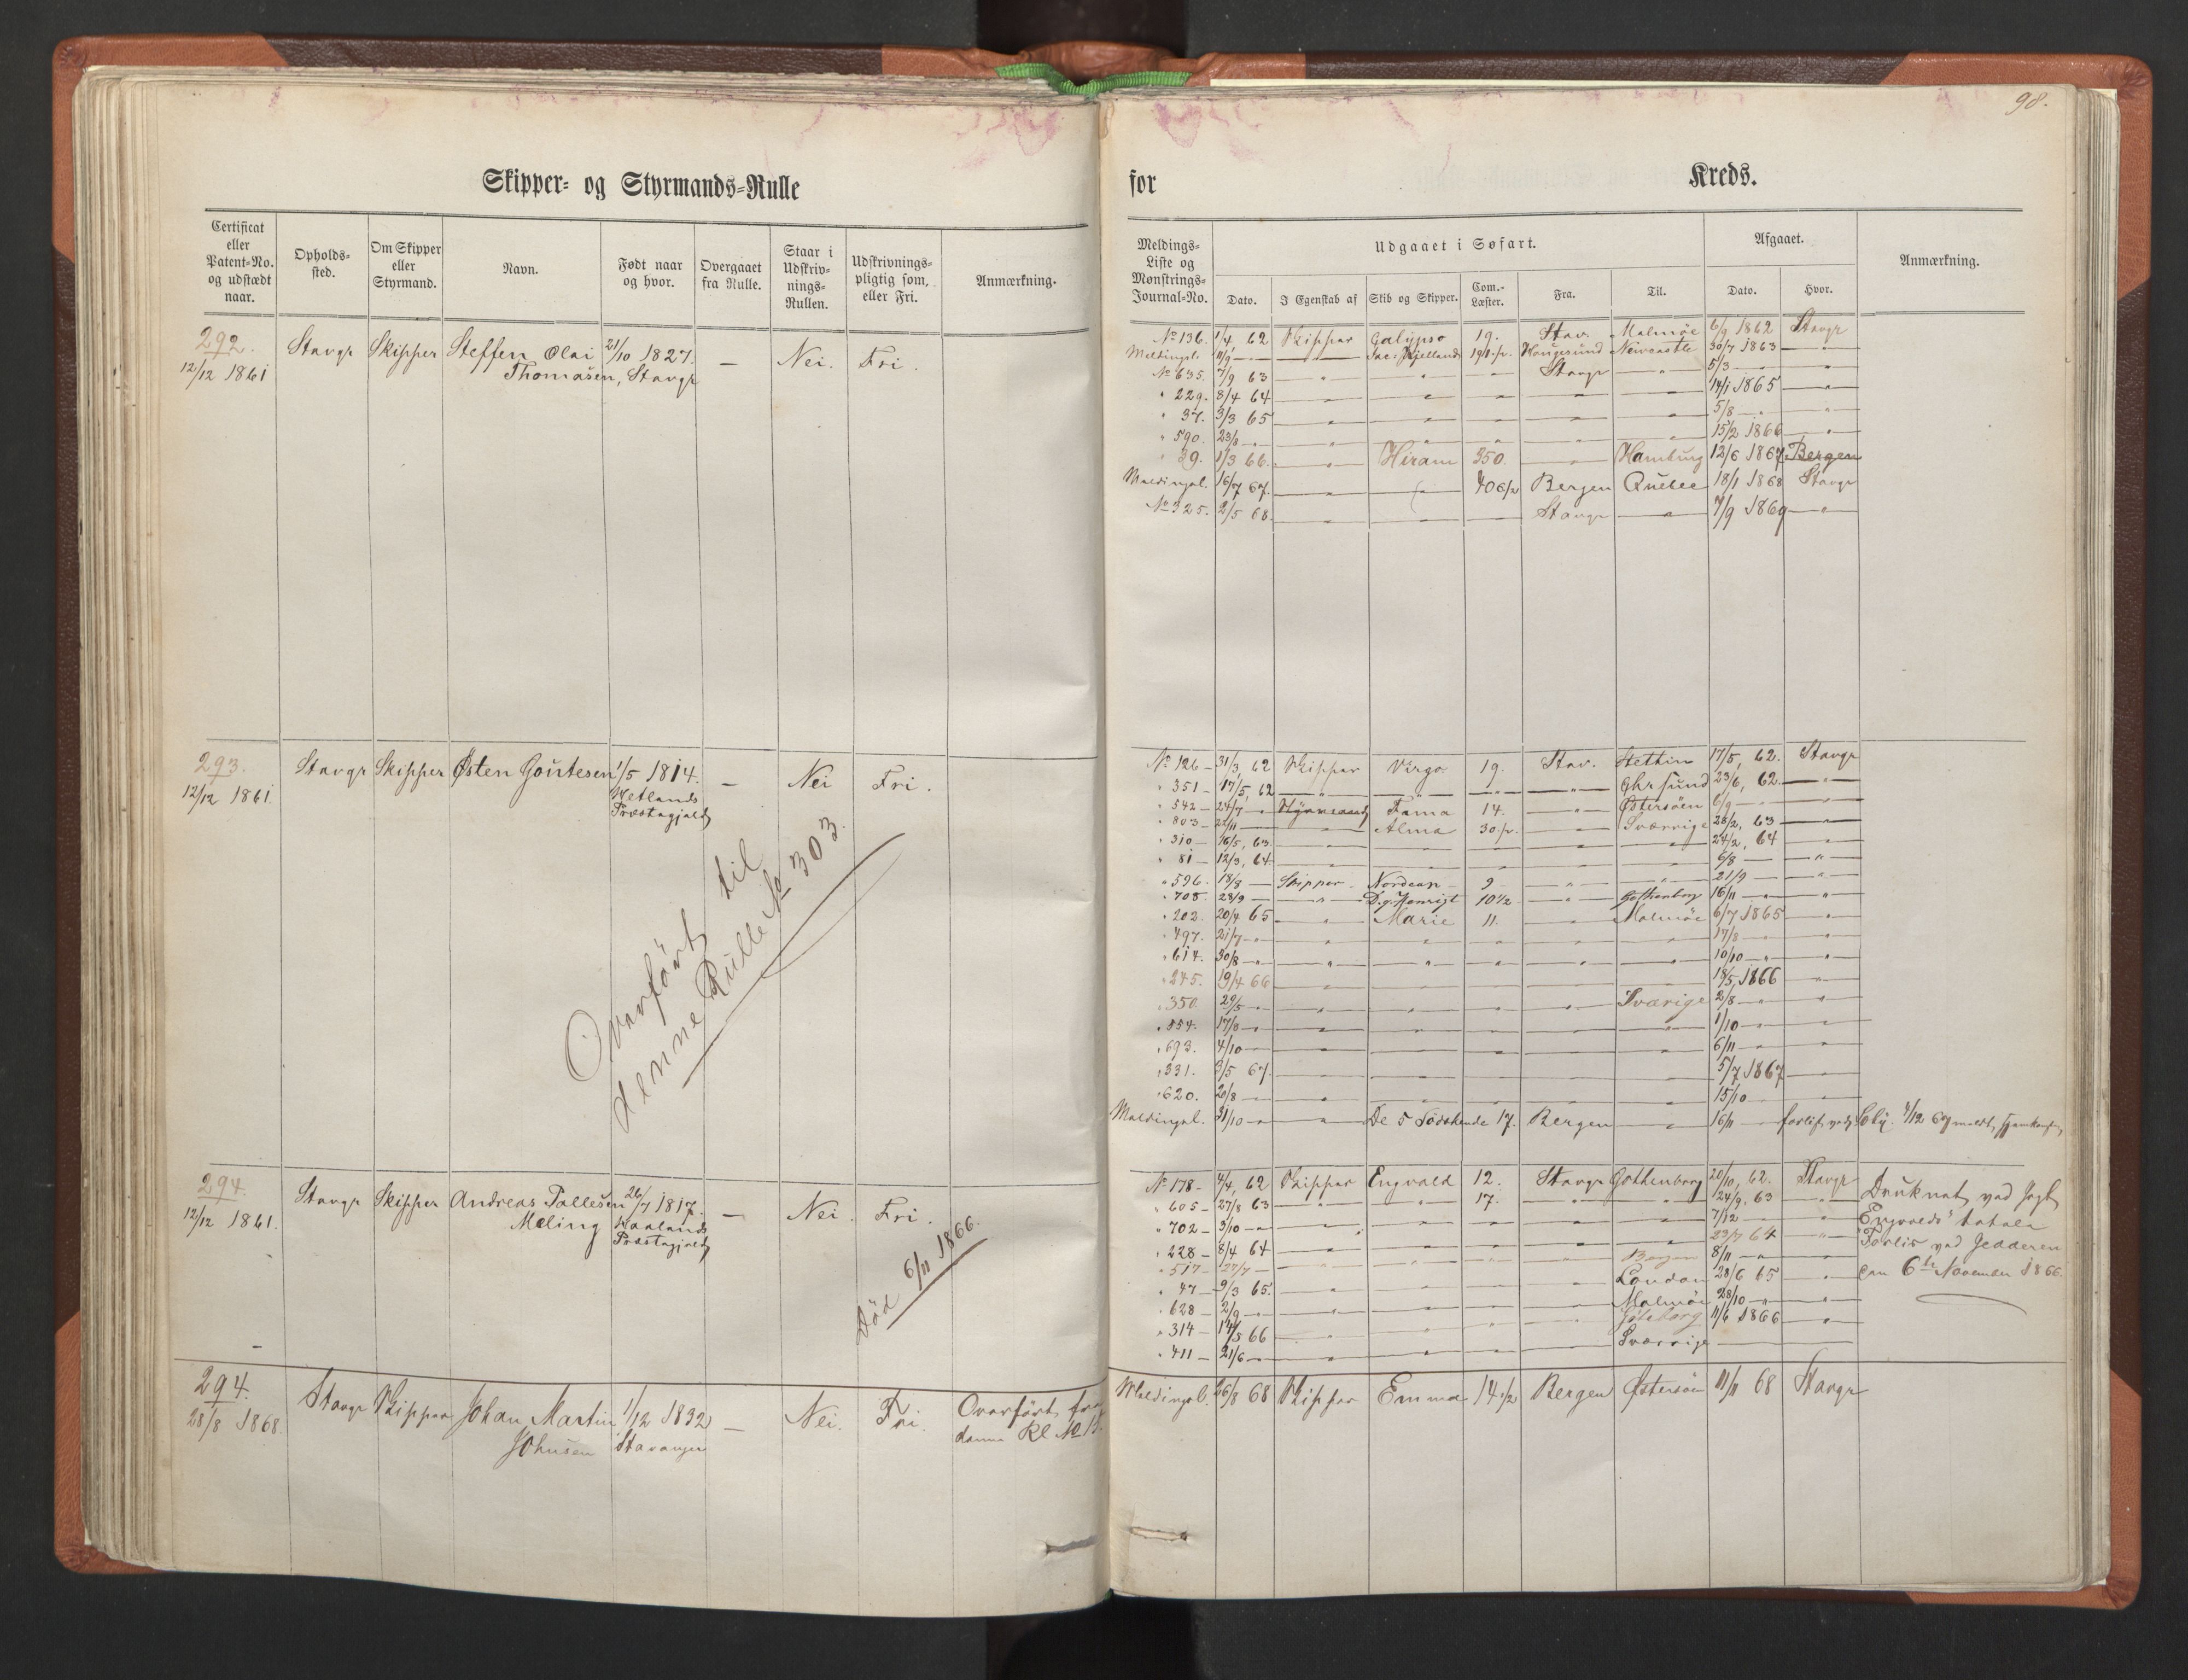 98.
Skipper- og Styrmands-Rulle
for Kreds.
Certificat eller Patent-No. og udstædt naar. Opholds-sted. Om Skipper eller Styrmand. Navn. Født naar og hvor. Overgaaet fra Rulle. Staar i Udskriv-nings-Rullen. Udskrivnings-pligtig som, eller Fri. Anmærkning.
Meldings-Liste og Mønstrings-Journal-No. Udgaaet i Søfart. Afgaaet. Anmærkning.
Dato. I Egenskab af Skib og Skipper. Com.-Læster. Fra. Til. Dato. Hvor.
292. Stavgr Skipper Steffen Olai 21/10 1827. — Nei. Fri.
12/12 1861 Thomasen, Stavgr
No 136. 1/4 62 Skipper Galypso 19. Stav. Malmöe 6/9 1862 Stavgr
Meldingsl. 11/9 — " — Jac: Kjelland Haugesund Newcastle 30/7 1863 — " —
No 635. 7/9 63 — " — " — Stavgr — " — 5/3 — " — "
" 229. 8/4 64 — " — " — " — " — " 14/1 1865 — "
" 37. 3/3 65 — " — " — " — " — " 5/8 — " — "
" 590. 23/8 — " — " — " — " — " — " 15/2 1866 — "
" 39. 1/3 66. — " — Hiram 350. — " — Hamburg 12/6 1867 Bergen
Meldingsl. 16/7 67. — " — " — 406/2 Bergen Quebec 18/1 1868 Stavgr
No 325. 2/5 68. — " — " — Stavgr — " — 7/9 1869 — "
293. Stavgr Skipper Østen Goutesen 1/5 1814. — Nei Fri.
12/12 1861. Hetlands
Præstegjeld
Overført til
denne Rulle No 303.
No 126 — 31/3, 62 Skipper Virgo 19. Stav. Stettin 17/5, 62. Stavgr
" 351 — 17/5, 62 — " — " — " — " — Chrsund 23/6, 62. — " —
" 542 — 24/7 — " Styrmand Fama 14. — " — Østersöen 6/9 — " — "
" 803 — 22/11 — " — Alma 30. — " — Sverrige 28/2, 63 — " —
" 310 — 16/5, 63. — " — " — " — " — " 24/2, 64 — "
" 81 — 12/3, 64. — " — " — " — " — " 6/8 — " —
" 596. 18/8 — Skipper Nordcap 9 — " — " — 21/9 — "
" 708. 28/9 — " — 10 1/2 — " — Gothenborg 16/11 — " — "
" 202. 20/4 65 — " Marie 11. — " — Malmöe 6/7 1865 — "
" 497. 21/7 — " — " — " — " — " — " 17/8 — " — "
" 614. 30/8 — " — " — " — " — " — " 10/10 — " — "
" 245. 19/4 66 — " — " — " — " — " 18/5 1866 — "
" 350. 29/5 — " — " — " — " — " Sverige 2/8 — " — "
" 554. 17/8 — " — " — " — " — " — " 1/10 — " — "
" 693. 4/10 — " — " — " — " — " — " 6/11 — " — "
" 331. 3/5 67. — " — " — " — " — " 5/7 1867 — "
" 620. 20/8 — " — " — " — " — " — " 15/10 — " — "
Meldingsl. 31/10 — " — " — De 5 Sødskende 17. Bergen — " — 16/11 — forlist
294. Stavgr Skipper Andreas Tallesen 26/7 1817. — Nei. Fri.
12/12 1861. Meling Haalands
Præstegjeld
Død 6/11 1866.
No 178 — 4/4, 62 Skipper Engvald 12. Stavgr Gothenborg 20/10, 62. Stavgr Druknet ved Jagt
" 605 — 27/8 63 — " — " 17. — " — " 24/9, 63 — " Engvalds totale
" 702 — 3/10 — " — " — " — " — " 7/12 — " — " Forlis ved Jedderen
" 228 — 8/4 64 — " — " — " — " — " 23/7 64 — " den 6te November 1866.
" 517 — 27/7 — " — " — " — " Bergen 8/11 — " — "
" 47 — 9/3 65. — " — " — " — " London 28/6 65 — "
" 628 — 2/9 — " — " — " — " — " Malmöe 28/10 — " — "
" 314 — 14/5 66 — " — " — " — " Göteborg 11/6 1866 — "
" 411 — 21/6 — " — " — " — " — " Sverrige
294. Stavgr Skipper Johan Martin 1/12 1832 — Nei. Fri. Overført fra
28/8 1868. Johnsen Stavanger denne Rl No
Meldingsl. 26/8 68 Skipper Emma 14 1/2 Bergen Østersöen 11/11 68 Stavgr